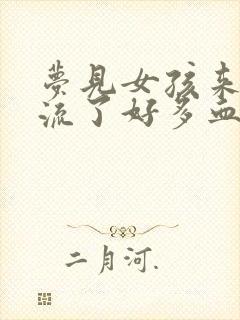 夢見女孩来
流了好多血
二月河.